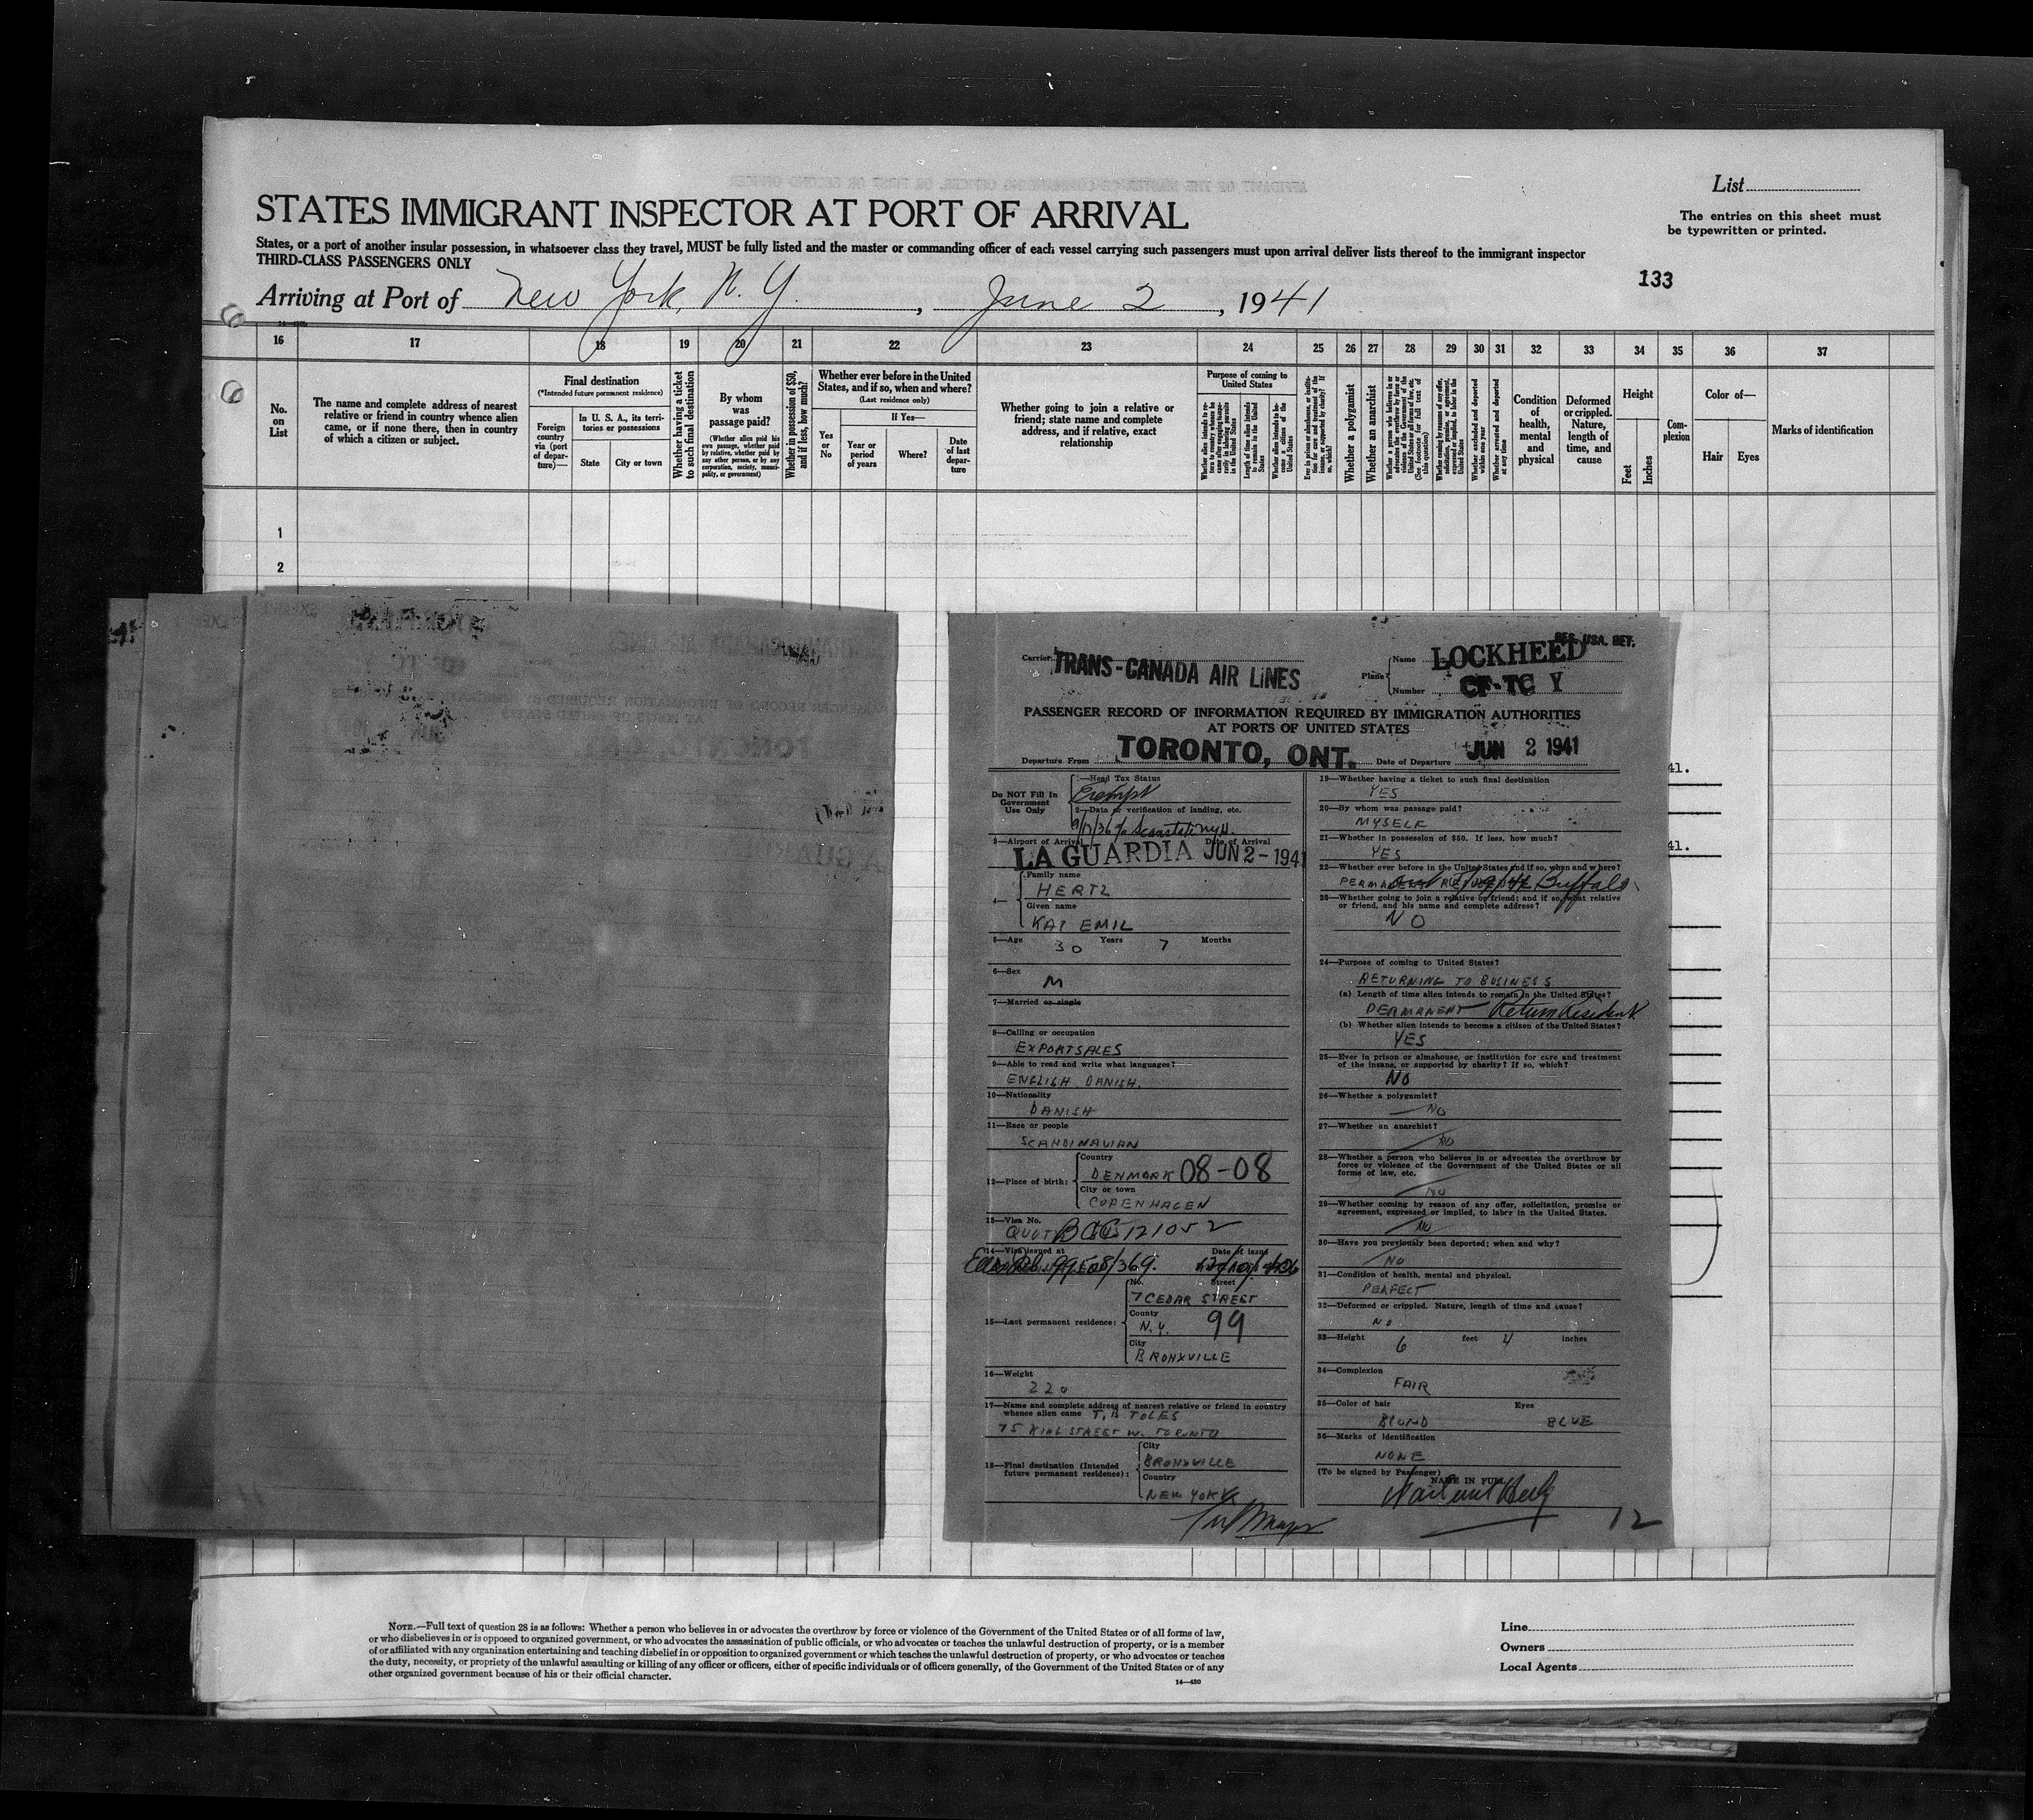 List
The entries on this sheet must
be typewritten or printed.
STATES IMMIGRANT INSPECTOR AT PORT OF ARRIVAL
States, or a port of another insular possession, in whatsoever class they travel, MUST be fully listed and the master or commanding officer of each vessel carrying such passengers must upon arrival deliver lists thereof to the immigrant inspector
THIRD-CLASS PASSENGERS ONLY
133
Arriving at Port of New York, N.Y., June 2, 1941
16 17 18 19 20 21 22 23 24 25 26 27 28 29 30 31 32 33 34 35 36 37
No. on List
The name and complete address of nearest
relative or friend in country whence alien
came, or if none there, then in country
of which a citizen or subject.
Final destination
(*Intended future permanent residence)
Foreign country via (port of departure)—
In U. S. A., its territories or possessions
State
City or town
Whether having a ticket to such final destination
By whom was passage paid?
(Whether alien paid his own passage, whether paid by relative, whether paid by any other person, or by any corporation, society, municipality, or government)
Whether in possession of $50, and if less, how much?
Whether ever before in the United States, and if so, when and where?
(Last residence only)
Yes or No
If Yes—
Year or period of years
Where?
Date of last departure
Whether going to join a relative or
friend; state name and complete
address, and if relative, exact
relationship
Purpose of coming to United States
Length of time alien intends to remain in the United States
Whether alien intends to become a citizen of the United States
Whether a polygamist
Whether an anarchist
Whether excluded and deported within one year
Whether arrested and deported at any time
Condition of health, mental and physical
Deformed or crippled. Nature, length of time, and cause
Height
Feet
Inches
Complexion
Color of—
Hair
Eyes
Marks of identification
1
2
RES. USA. RET.
Carrier TRANS-CANADA AIR LINES
Plane Name LOCKHEED
Number CF-TC Y
PASSENGER RECORD OF INFORMATION REQUIRED BY IMMIGRATION AUTHORITIES
AT PORTS OF UNITED STATES
Departure From TORONTO, ONT. Date of Departure JUN 2 1941
Do NOT Fill In Government Use Only
1—Head Tax Status
Exempt
2—Data of verification of landing, etc.
3—Airport of Arrival Date of Arrival
LA GUARDIA JUN 2-1941
4—
Family name
HERTZ
Given name
KAI EMIL
5—Age 30 Years 7 Months
6—Sex
M
7—Married or single
8—Calling or occupation
EXPORT SALES
9—Able to read and write what languages?
ENGLISH DANISH.
10—Nationality
DANISH
11—Race or people
SCANDINAVIAN
12—Place of birth:
Country
DENMARK 08-08
City or town
COPENHAGEN
13—Visa No.
QUOTA BCC 121052
14—Visa issued at Date of issue
15—Last permanent residence:
No. Street
7 CEDAR STREET
County
N.Y. 99
City
BRONXVILLE
16—Weight
220
17—Name and complete address of nearest relative or friend in country
whence alien came T. B. TOLES
75 KING STREET W. TORONTO
18—Final destination (Intended
future permanent residence):
City
BRONXVILLE
Country
NEW YORK
19—Whether having a ticket to such final destination
YES
20—By whom was passage paid?
MYSELF
21—Whether in possession of $50. If less, how much?
YES
22—Whether ever before in the United States and if so, when and where?
Buffalo
23—Whether going to join a relative or friend; and if so, what relative
or friend, and his name and complete address?
NO
24—Purpose of coming to United States?
RETURNING TO BUSINESS
(a) Length of time alien intends to remain in the United States?
PERMANENT Return Resident
(b) Whether alien intends to become a citizen of the United States?
YES
25—Ever in prison or almshouse, or institution for care and treatment
of the insane, or supported by charity? If so, which?
NO
26—Whether a polygamist?
NO
27—Whether an anarchist?
NO
28—Whether a person who believes in or advocates the overthrow by
force or violence of the Government of the United States or all
forms of law, etc.
NO
29—Whether coming by reason of any offer, solicitation, promise or
agreement, expressed or implied, to labor in the United States.
NO
30—Have you previously been deported; when and why?
NO
31—Condition of health, mental and physical.
PERFECT
32—Deformed or crippled. Nature, length of time and cause?
NO
33—Height 6 feet 4 inches
34—Complexion
FAIR
35—Color of hair Eyes
BLOND BLUE
36—Marks of identification
NONE
(To be signed by Passenger)
NAME IN FULL
12
41.
41.
NOTE.—Full text of question 28 is as follows: Whether a person who believes in or advocates the overthrow by force or violence of the Government of the United States or of all forms of law,
or who disbelieves in or is opposed to organized government, or who advocates the assassination of public officials, or who advocates or teaches the unlawful destruction of property, or is a member
of or affiliated with any organization entertaining and teaching disbelief in or opposition to organized government or which teaches the unlawful destruction of property, or who advocates or teaches
the duty, necessity, or propriety of the unlawful assaulting or killing of any officer or officers, either of specific individuals or of officers generally, of the Government of the United States or of any
other organized government because of his or their official character.
14—430
Line
Owners
Local Agents